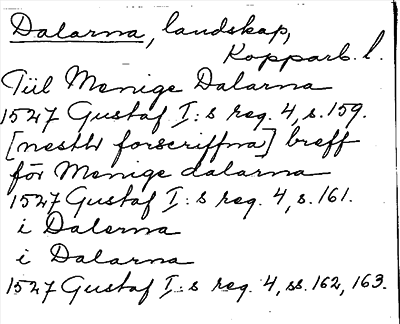 Dalarna, landskap,
Kopparb. l.
Tiil Menige Dalarna
1527 Gustaf I:s reg. 4, s. 159.
[nesthr forscriffna] breff
för Menige dalarna
1527 Gustaf I:s reg. 4, s. 161.
i Dalerna
i Dalarna
1527 Gustaf I:s reg. 4, ss. 162, 163.